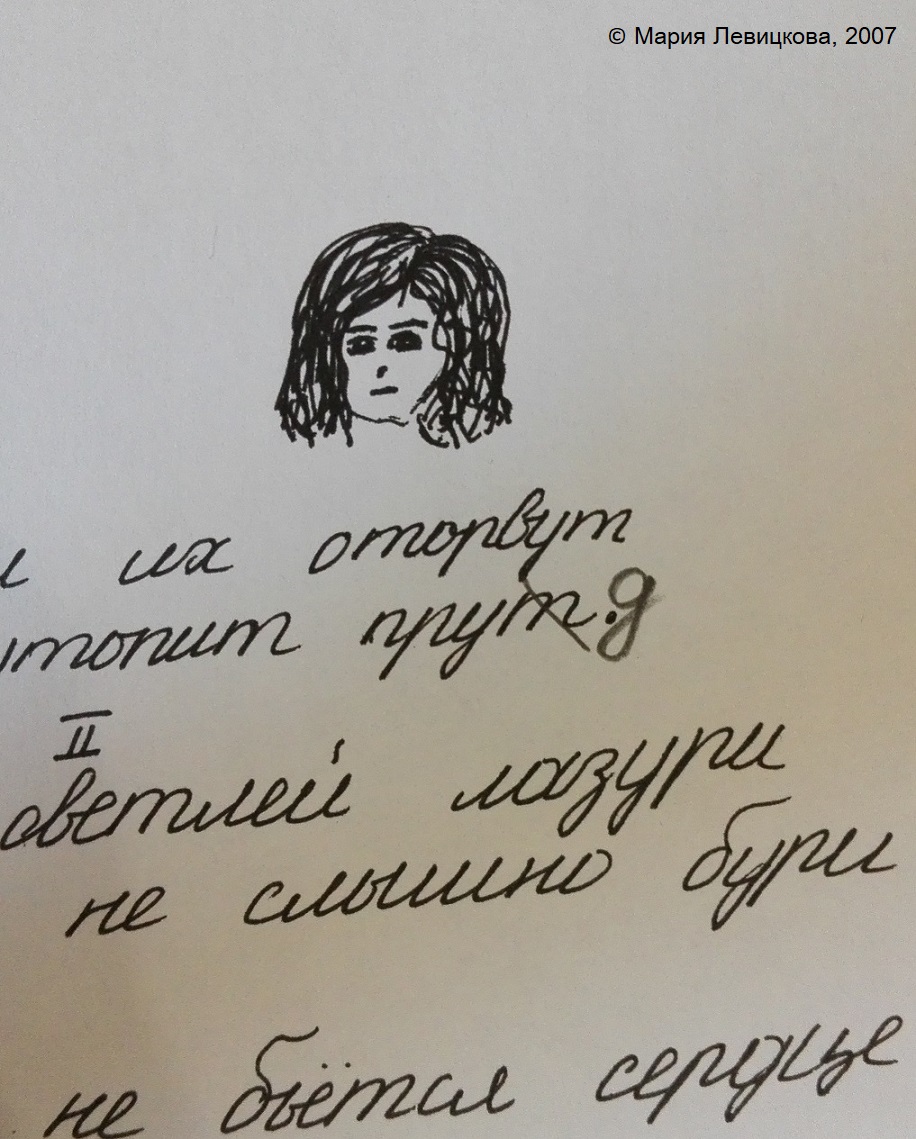 © Мария Левицкова, 2007
их оторвут
утопит прут.д
II
светлей лазури
не слышно бури
не бьётся сердце